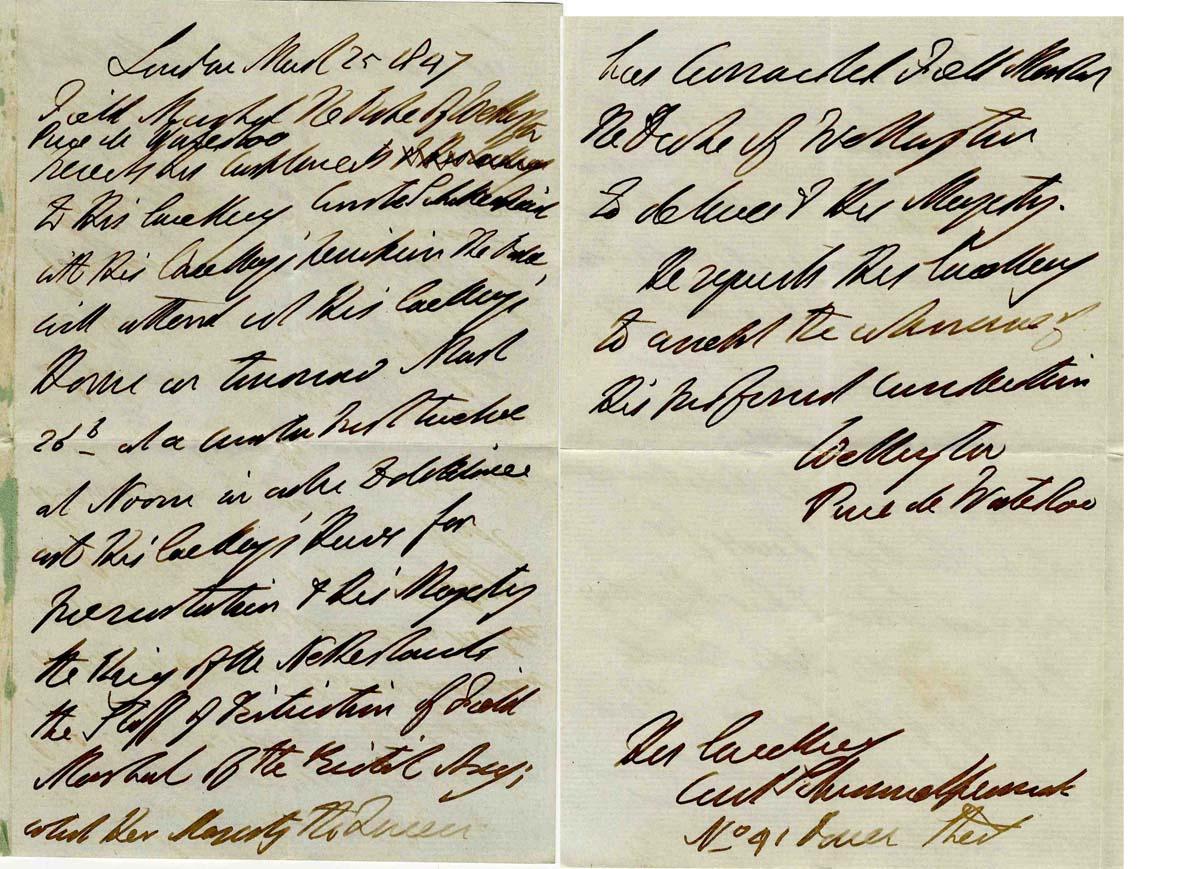 London March 25 1847
Field Marshal The Duke of Wellington
Prince de Waterloo
presents his compliments
to His Excellency Count Schimmelpenninck
with His Excellency's permission The Duke
will attend at His Excellency's
House on tomorrow March
26th at a quarter past twelve
at Noon in order to deliver
into His Excellency's Hands for
presentation to His Majesty
the King of the Netherlands
the Staff of Distinction of Field
Marshal of the British Army;
which Her Majesty the Queen
has commanded Field Marshal
The Duke of Wellington
to deliver to His Majesty.
He requests His Excellency
to accept the assurances of
His profound consideration
Wellington
Prince de Waterloo
His Excellency
Count Schimmelpenninck
No 41 Street